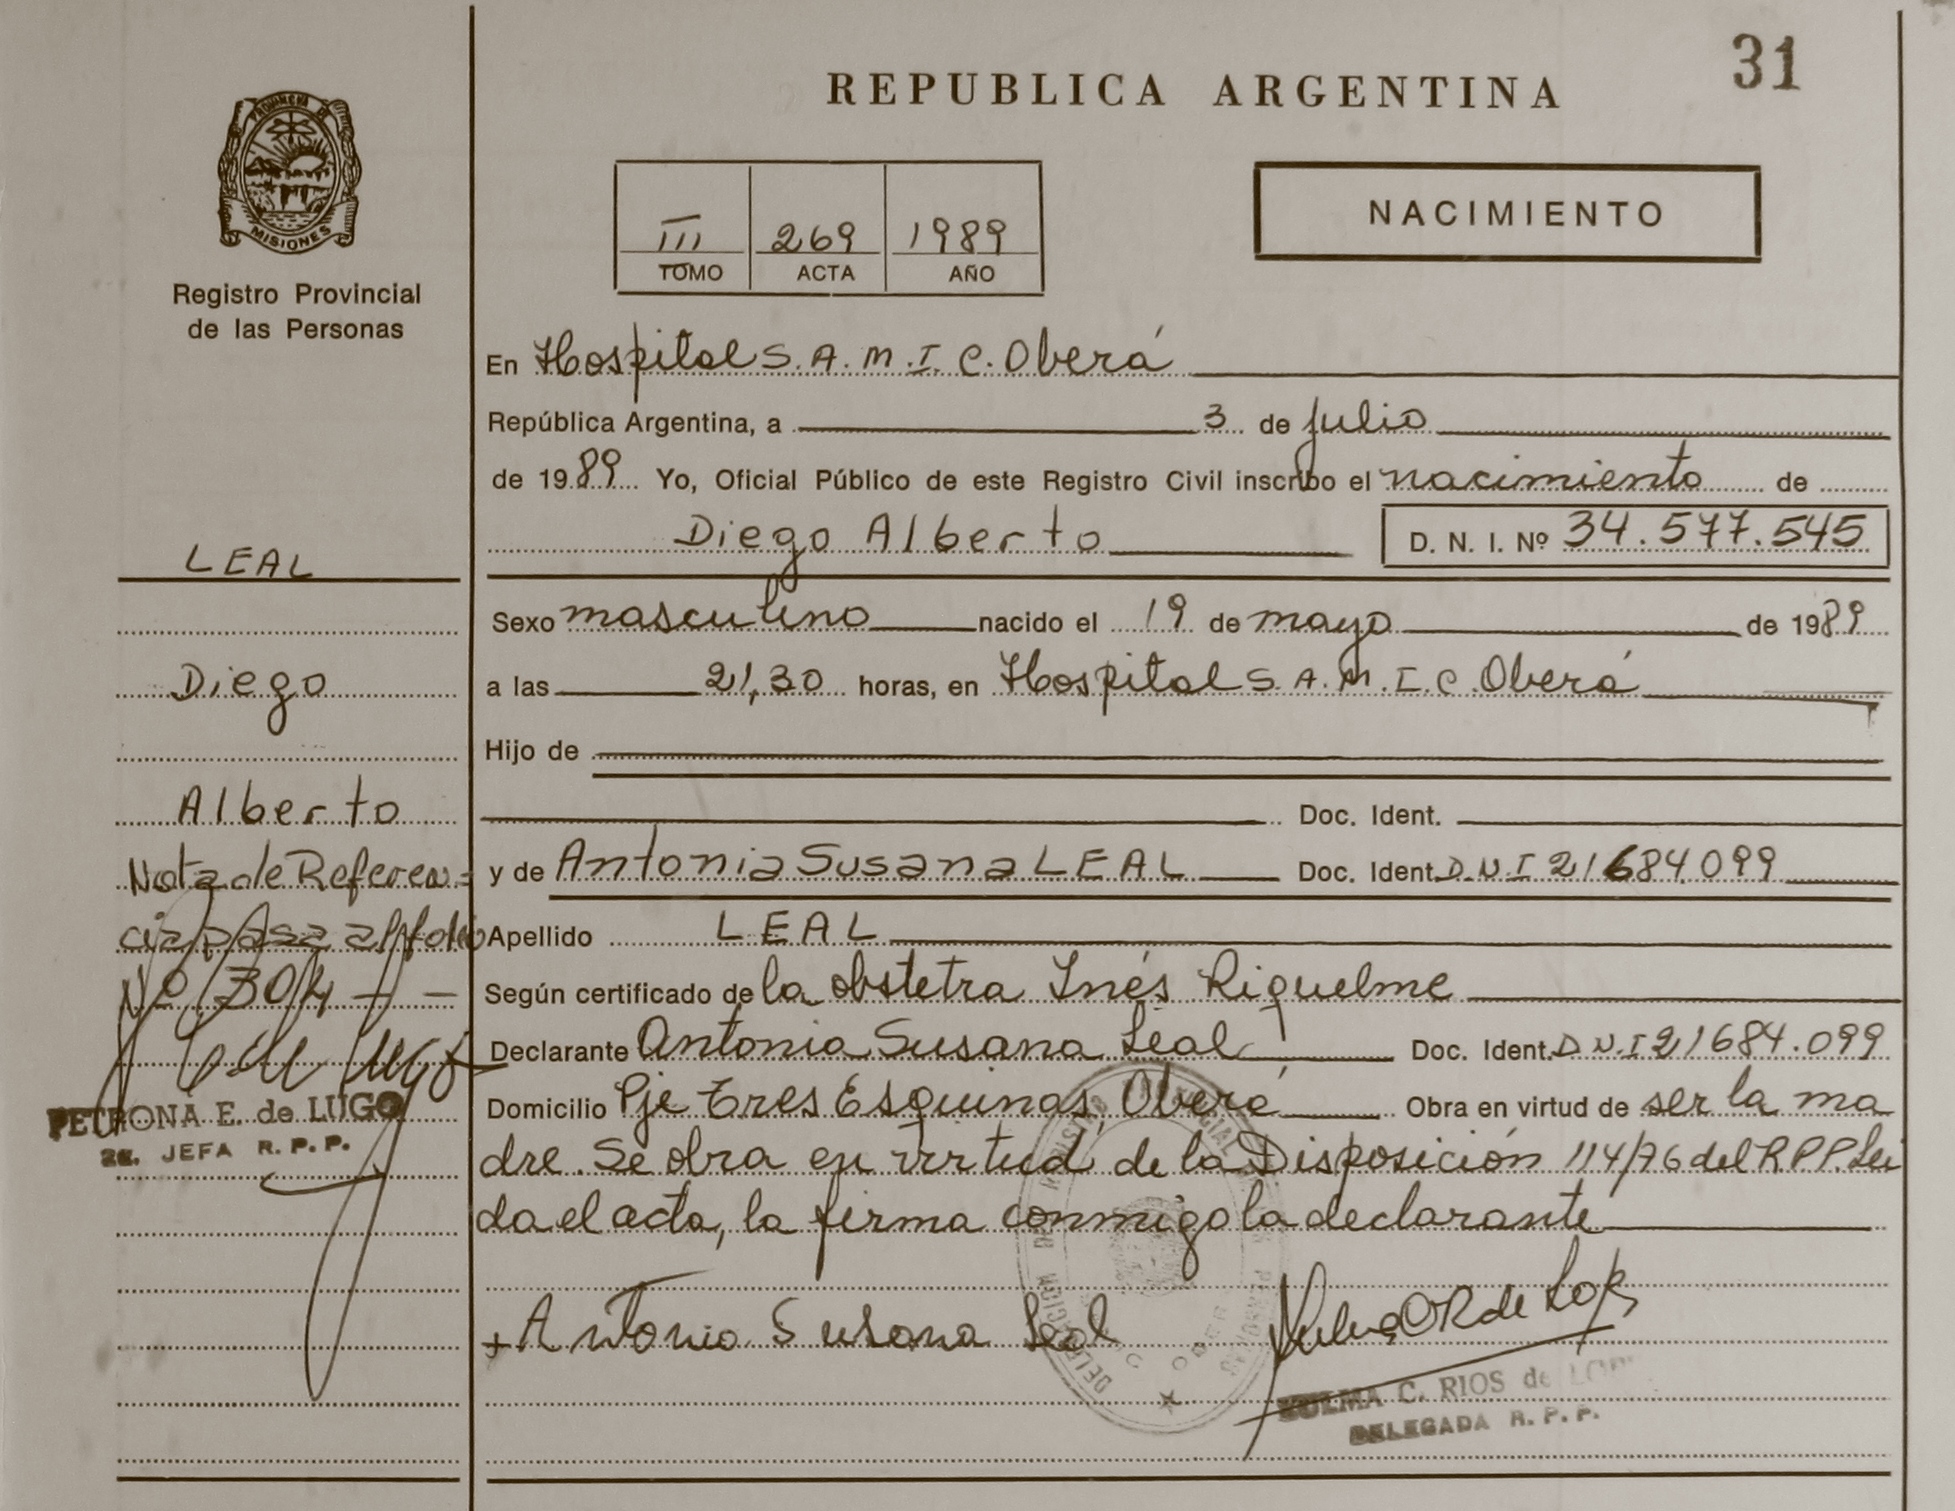 31
REPUBLICA ARGENTINA
PROVINCIA DE
MISIONES
Registro Provincial
de las Personas
III 269 1989
TOMO ACTA AÑO
NACIMIENTO
En Hospital S.A.M.I.C. Oberá
República Argentina, a 3 de julio
de 1989 Yo, Oficial Público de este Registro Civil inscribo el nacimiento de
Diego Alberto D. N. I. Nº 34.577.545
LEAL
Sexo masculino nacido el 19 de mayo de 1989
Diego
a las 21,30 horas, en Hospital S.A.M.I.C. Oberá
Hijo de
Alberto
Doc. Ident.
Nota de Referen=
y de Antonia Susana LEAL Doc. Ident. D.N.I 21684.099
cia pasa al folio
Apellido LEAL
Nº 304 - -
Según certificado de la obstetra Inés Riquelme
Declarante Antonia Susana Leal Doc. Ident. D.N.I 21684.099
PETRONA E. de LUGO
JEFA R. P. P.
Domicilio Pje Tres Esquinas, Oberá Obra en virtud de ser la ma
dre. Se obra en virtud de la Disposición 114/76 del R.P.P. Lei
da el acta, la firma conmigo la declarante
+ Antonia Susana Leal
ZULMA C. RIOS de LOPEZ
DELEGADA R. P. P.